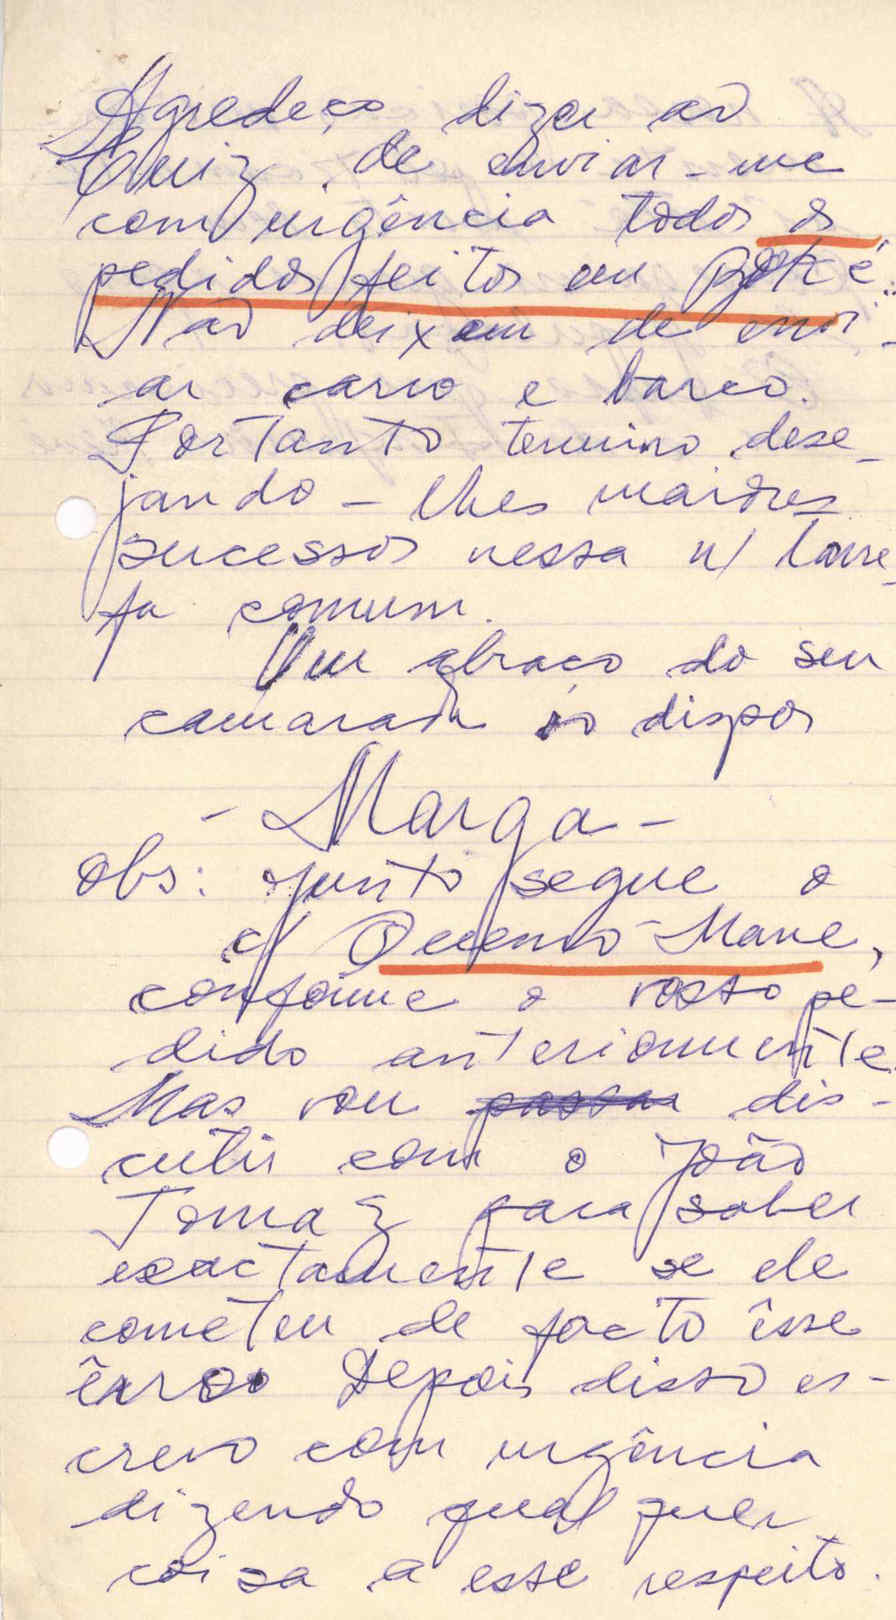 Agradeço dizer ao
Luiz de enviar-me
com urgência todos os
pedidos feitos em Boké.
Não deixem de envi-
ar carro e barco.
Portanto termino dese-
jando-lhes maiores
sucessos nessa n/ tare-
fa comum.
Um abraço do seu
camarada ao dispor
- Marga -
Obs: junto segue o
c/ Quecuno Mané,
conforme o vosso pe-
dido anteriormente.
Mas vou dis-
cutir com o João
Tomaz para saber
exactamente se ele
cometeu de facto êsse
êrro. Depois disso es-
crevo com urgência
dizendo qualquer
coisa a esse respeito.